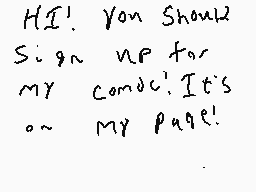 HI! You Should
Sign up for
my comdc! It's
on my page!